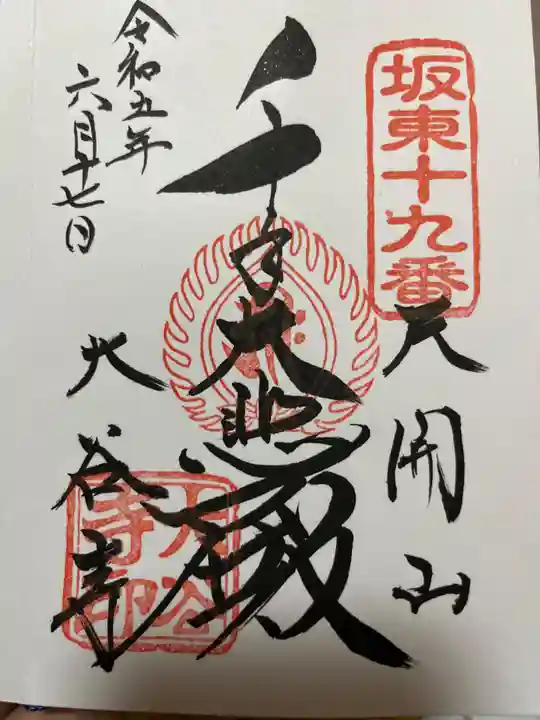 坂東十九番
天開山
千手大悲殿
令和五年
六月十七日
大谷寺
大谷寺印